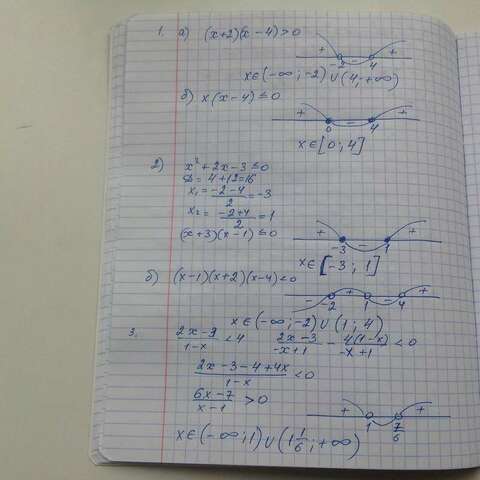 1. а) (x+2)(x-4)>0
+ - +
-2 4
x∈(-∞;-2)∪(4;+∞)
б) x(x-4)≤0
+ - +
0 4
x∈[0;4]
2) x²+2x-3≤0
D=4+12=16
x₁=(-2-4)/2=-3
x₂=(-2+4)/2=1
(x+3)(x-1)≤0
+ - +
-3 1
x∈[-3;1]
б) (x-1)(x+2)(x-4)<0
- + - +
-2 1 4
x∈(-∞;-2)∪(1;4)
3. (2x-3)/(1-x)<4 (2x-3)/(-x+1) - 4(1-x)/(-x+1)<0
(2x-3-4+4x)/(1-x)<0
(6x-7)/(x-1)>0
+ - +
1 7/6
x∈(-∞;1)∪(1 1/6;+∞)